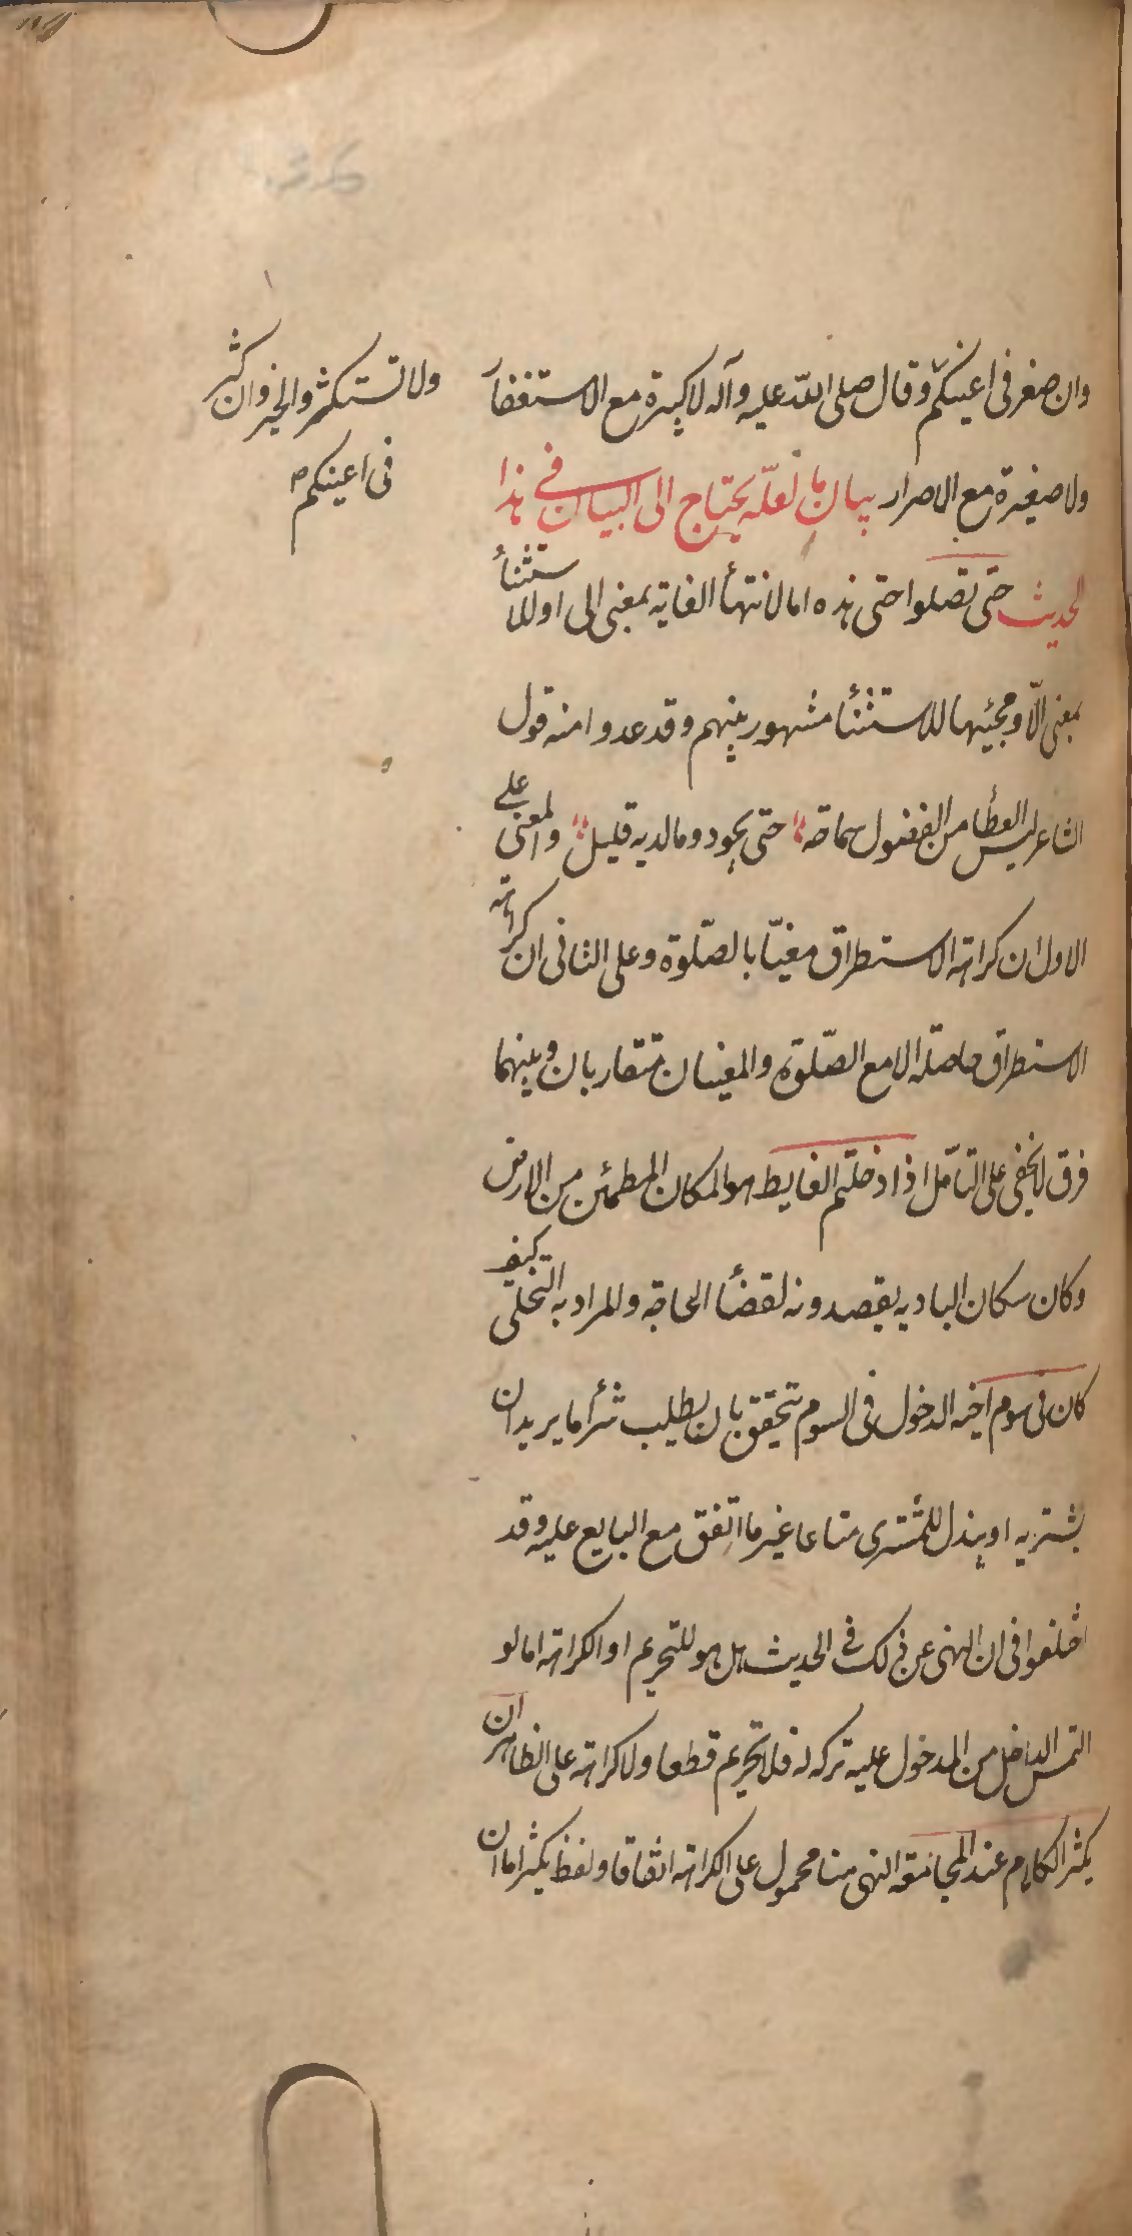 وان صغر فى اعينكم وقال صلى الله عليه وآله لا كبيرة مع الاستغفار
ولا صغيرة مع الاصرار بيان ما لعلّه يحتاج الى البيان فى هذا
الحديث حتى تصلوا حتى هذه اما لانتهأ الغاية بمعنى الى او للاستثنأ
بمعنى الّا ومجيئها للاستثنأ مشهور بينهم وقد عدوا منه قول
الشاعر ليس العطأ من الفضول سماحة حتى يجود وما لديه قليل والمعنى على
الاول ان كراهة الاستطراق مغيّا بالصّلوة وعلى الثانى ان كراهة
الاستطراق حاصلة الا مع الصّلوة والمعنيان متقاربان وبينهما
فرق لا يخفى على التأمّل اذا دخلتم الغايط هو المكان المطمئن من الارض
وكان سكان البادية يقصدونه لقضأ الحاجة والمراد به التخلّى كيف
كان فى سوم اخيه الدخول فى السوم يتحقق بان يطلب شرأ ما يريد ان
يشتريه او يبذل للمشترى متاعا غير ما اتفق مع البايع عليه وقد
اختلفوا فى ان النهى عن ذلك فى الحديث هل هو للتحريم او الكراهة اما لو
التمس الداخل من المدخول عليه تركه له فلا تحريم قطعا ولا كراهة على الظاهر ان
يكثر الكلام عند المجامعة النهى هنا محمول على الكراهة اتفاقا ولفظ يكثر اما ان
ولا تستكثروا الخير وان كثر
فى اعينكم